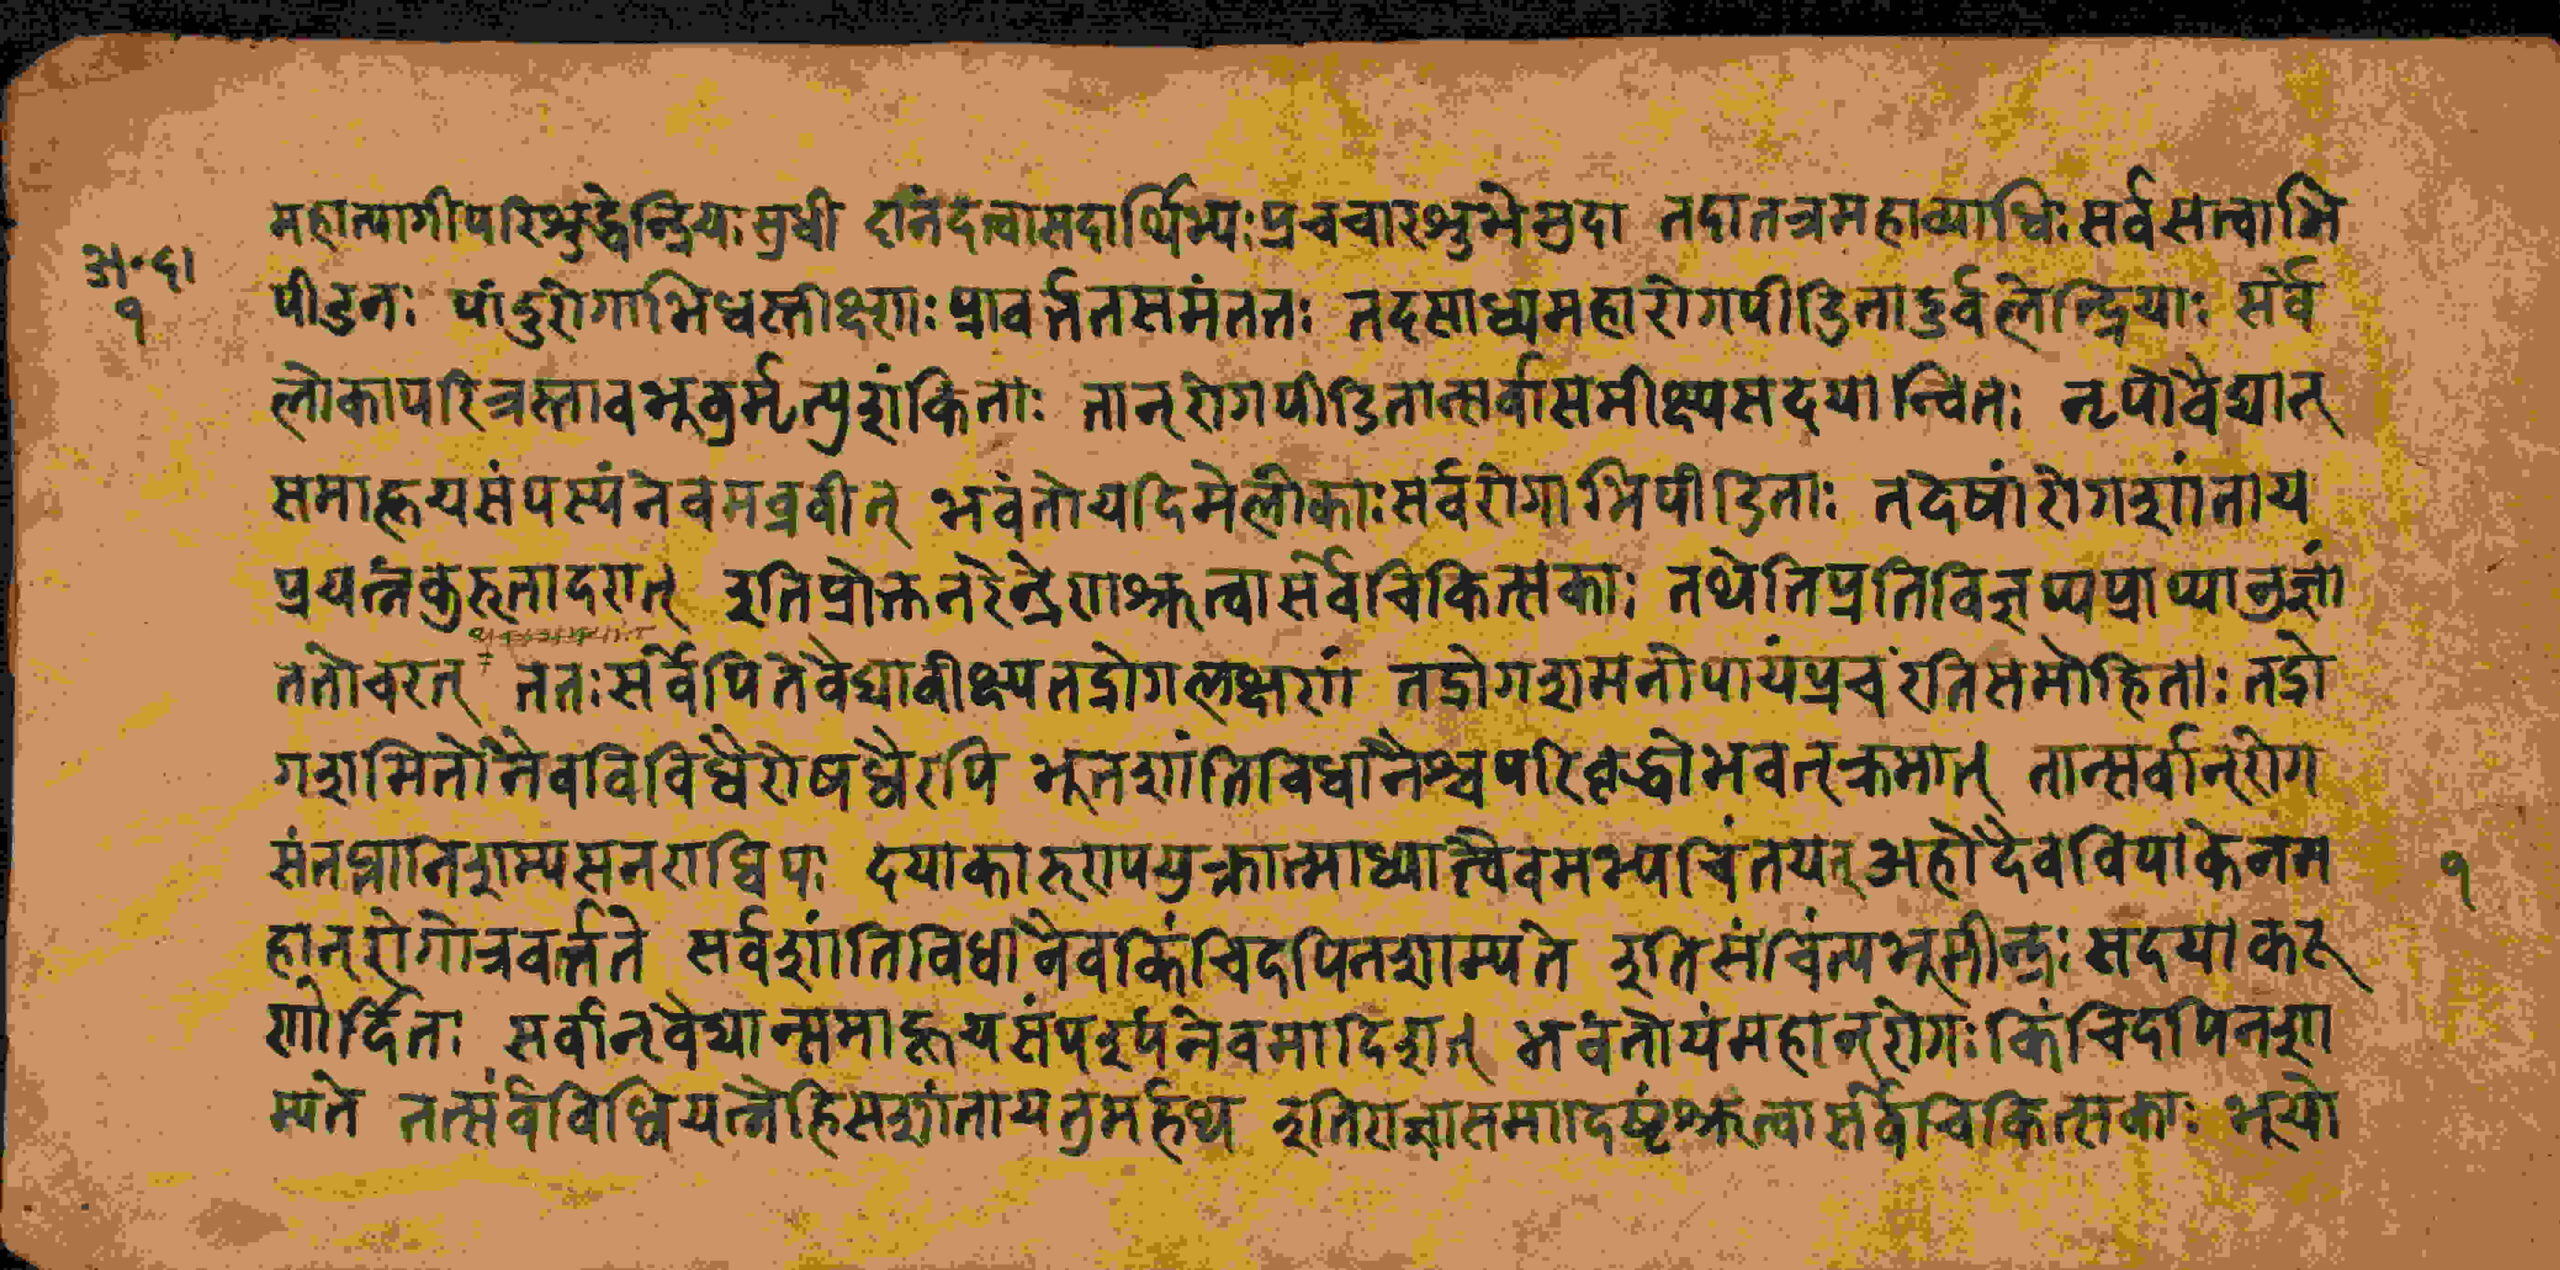 महात्यागीपरिश्रुद्धेन्द्रियःसुधी दानंदत्वासदार्थिभ्यःप्रचचारश्रुभेमुदा तदातत्रमहाव्याधिःसर्वसत्वाभि
अ॰दा
१
पीडनः पांडुरोगाभिधस्तीक्ष्णाःप्रावर्त्ततसमंततः तदसाध्यमहारोगपीडितादुर्वलेन्द्रियाः सर्वे
लोकापरित्रस्तावभूवुर्मृत्युशंकिताः तान्रोगपीडितान्सर्वासमीक्ष्यसदयान्वितः नृपोवैद्यान्
समाहूयसंपस्यंनेवमव्रवीत् भवंतोयदिमेलोकाःसर्वरोगाभिपीडिताः तदेषांरोगशांताय
प्रयत्नंकुरुतादरात् इतिप्रोक्तनरेन्द्रेणश्रुत्वासर्वेचिकित्सकाः तथेतिप्रतिविज्ञप्यप्राप्यानुज्ञां
ततोचरत् ततःसर्वेपितेवैद्यावीक्ष्यतद्रोगलक्षणं तद्रोगशमनोपायंप्रचरंतिसमोहिताः तद्रो
गशमितोनैवविविधैरोषधैरपि भूतशांतिविधानैश्चपरिवृद्धोभवत्क्रमात् तान्सर्वान्रोग
संतप्तानिशम्यसनराधिपः दयाकारुण्ययुक्तात्माध्यात्वैवमभ्यचिंतयत् अहोदैवविपाकेनम
१
हान्रोगोत्रवर्त्तते सर्वशांतिविधानैवकिंचिदपिनशाम्यते इतिसंचिंत्यभूमीन्द्रःसदयाकरु
णोर्दितः सर्वान्वैद्यान्समाहूयसंपश्यंनेवमादिशत् भवंतोयंमहान्रोगःकिंचिदपिनशा
म्यते तत्सर्वंविधियत्नैहिसशांतायतुमर्हथ इतिराज्ञासमादिष्टंश्रुत्वासर्वेचिकित्सकाः भूयो